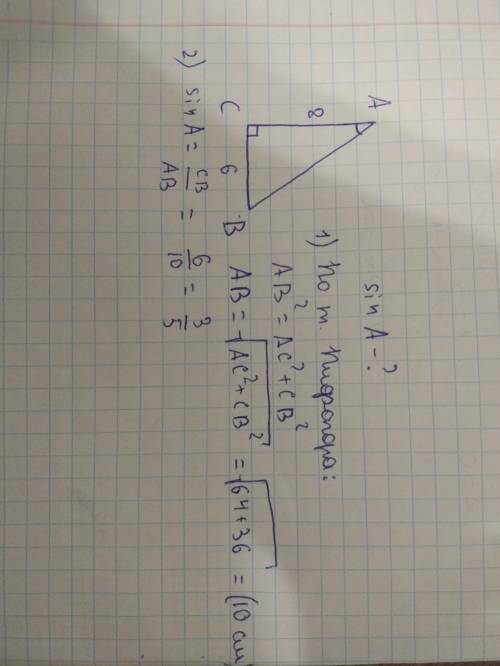 sin A - ?
A
8
C
6
B
1) По т. Пифагора:
AB² = AC² + CB²
AB = √AC² + CB² = √64 + 36 = (10 см
2) sin A = CB/AB = 6/10 = 3/5